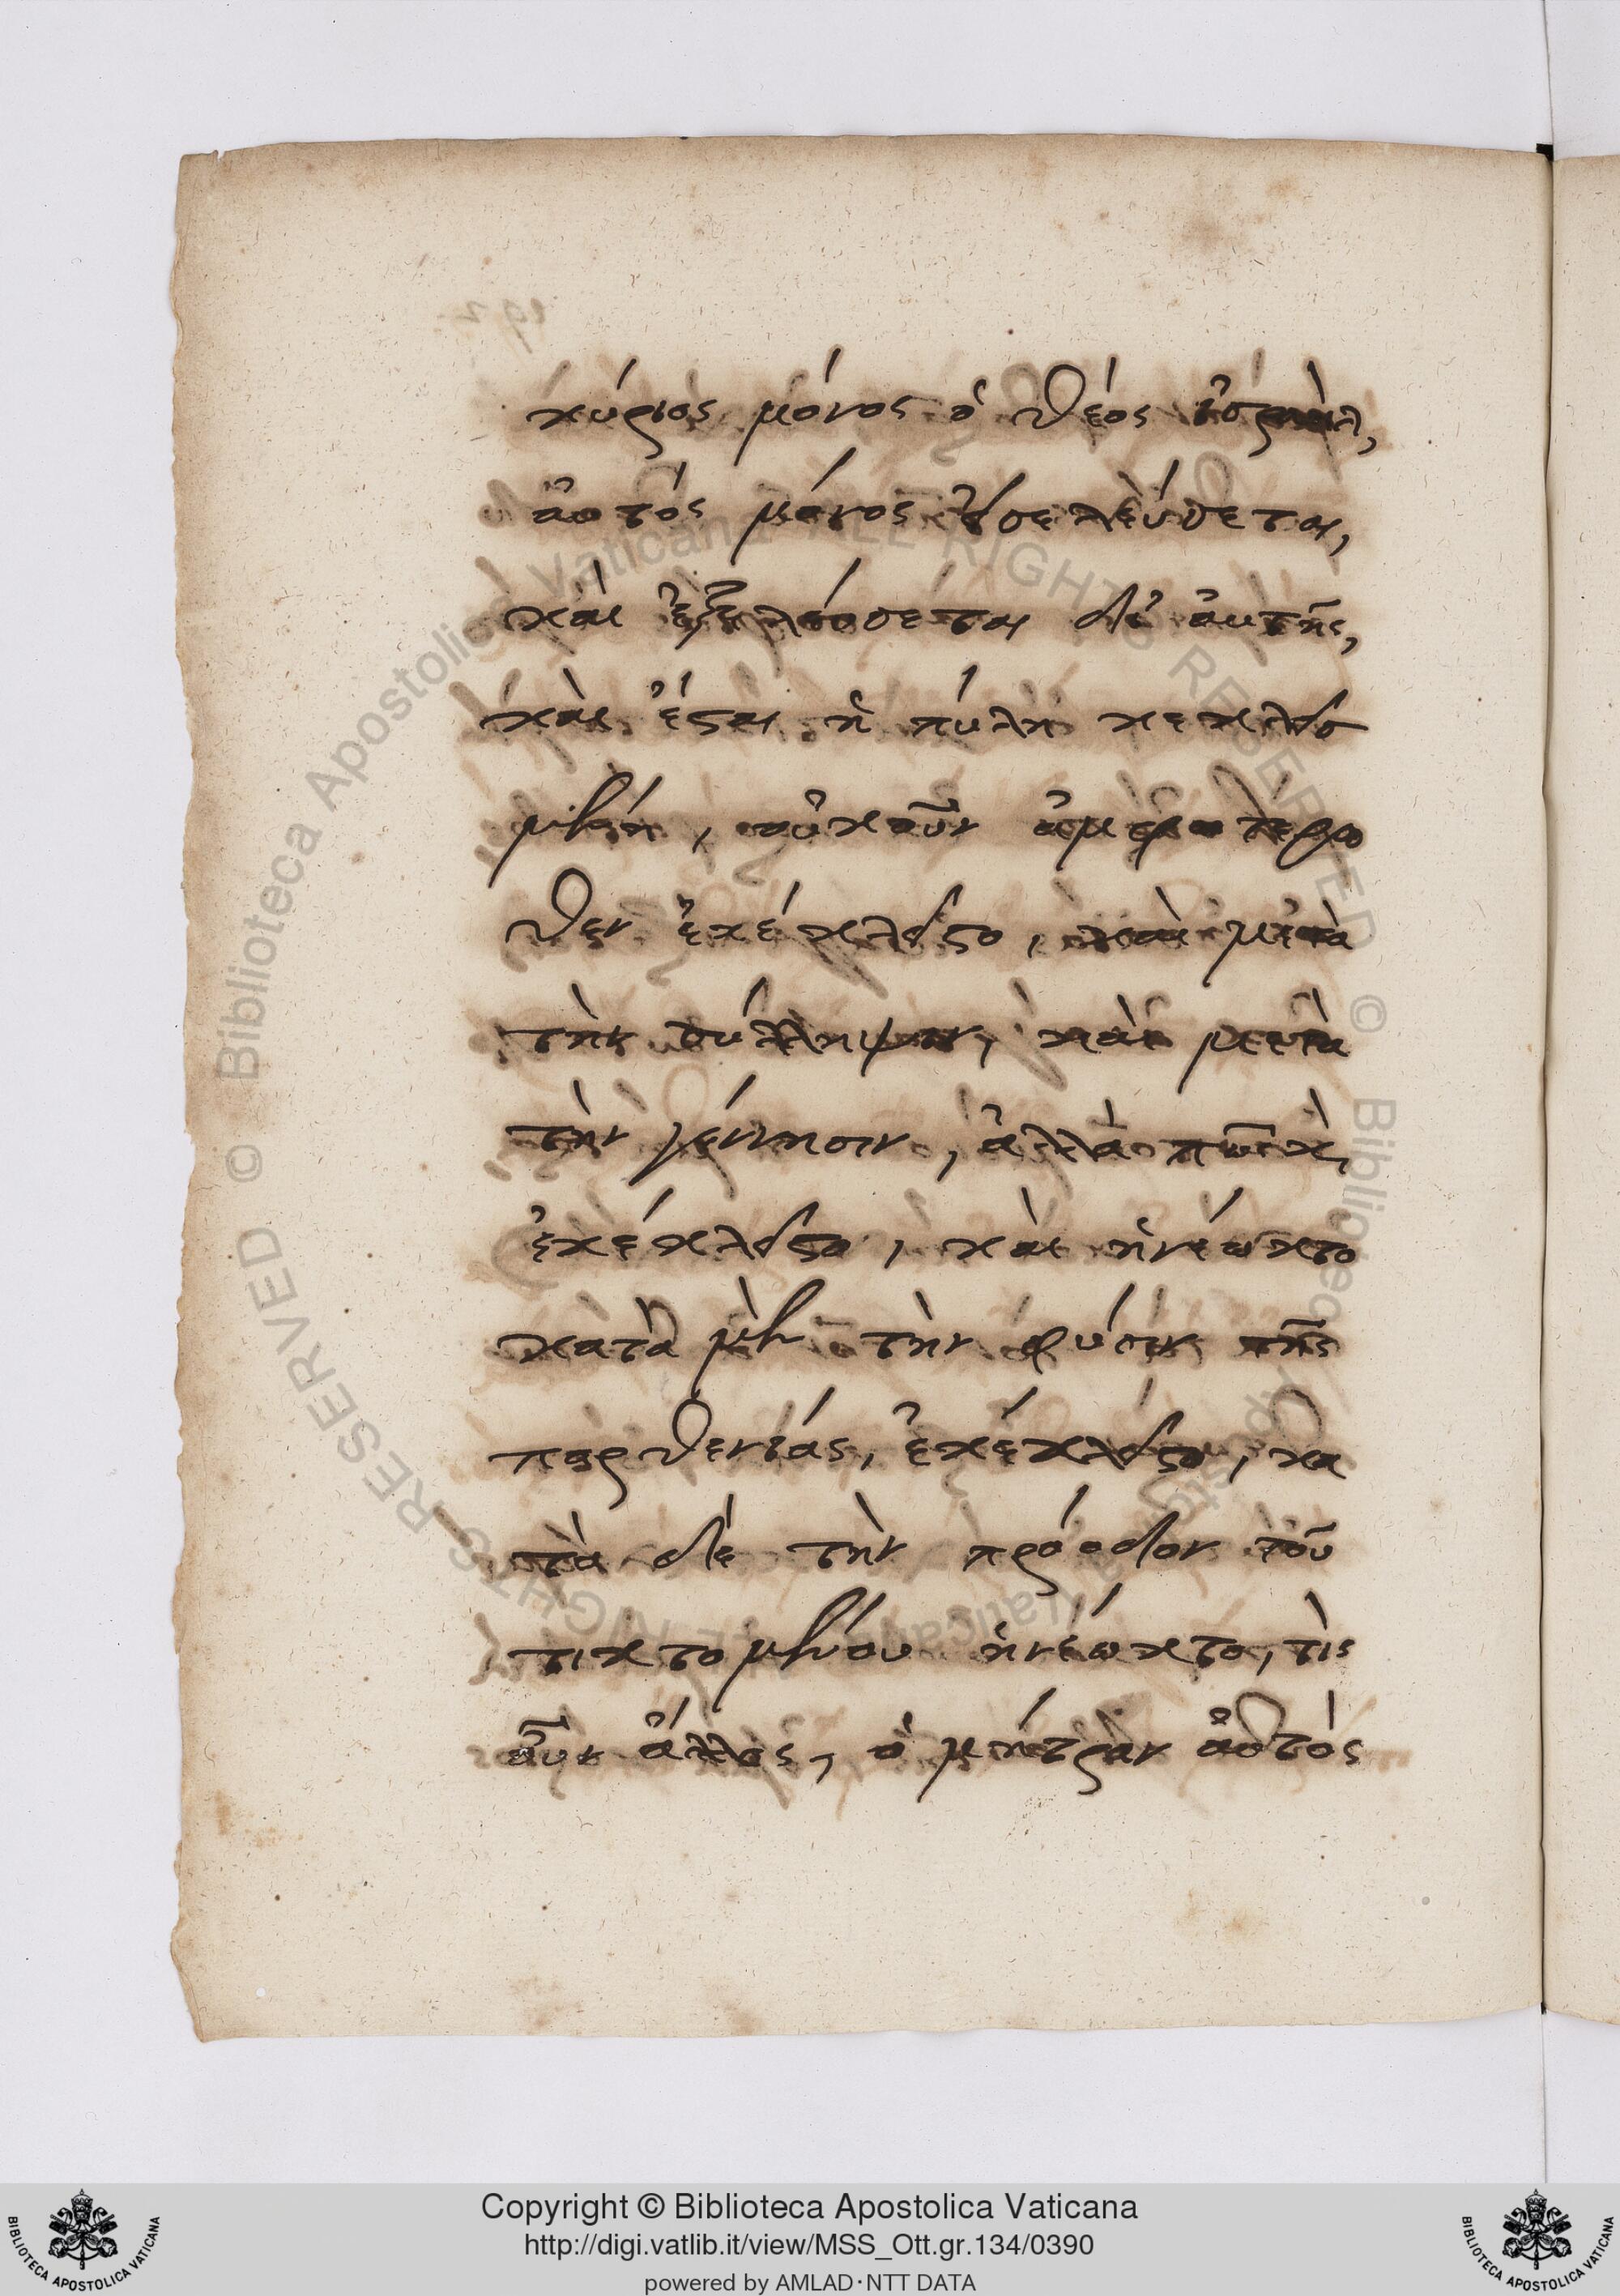 κύριος μόνος ὁ θεός ἰσραὴλ,
ἀυτός μόνος εἰσελεύσεται,
καὶ ἐξελεύσεται δι' ἀυτῆς,
καὶ ἔσται ἡ πύλη κεκλεισ
μένη, οὐκοῦν ἀμφοτέρο
θεν ἐκέκλειστο, καὶ μετὰ
τὴν σύλληψιν, καὶ μετὰ
τὴν γέννησιν, ἀλλὰ πῶς καὶ
ἐκέκλειστο, καὶ ἠνέωκτο
κατὰ μὲν τὴν φύσιν τῆς
παρθενίας, ἐκέκλειστο, κα
τὰ δὲ τὴν πρόοδον τοῦ
τικτομένου ἠνέωκτο, τίς
οὖν ἄλλος, ὁ μήτραν ἀυτός
Copyright © Biblioteca Apostolica Vaticana
http://digi.vatlib.it/view/MSS_Ott.gr.134/0390
powered by AMLAD·NTT DATA
BIBLIOTECA APOSTOLICA VATICANA
BIBLIOTECA APOSTOLICA VATICANA
© Biblioteca Apostolica Vaticana ALL RIGHTS RESERVED © Biblioteca Apostolica Vaticana ALL RIGHTS RESERVED